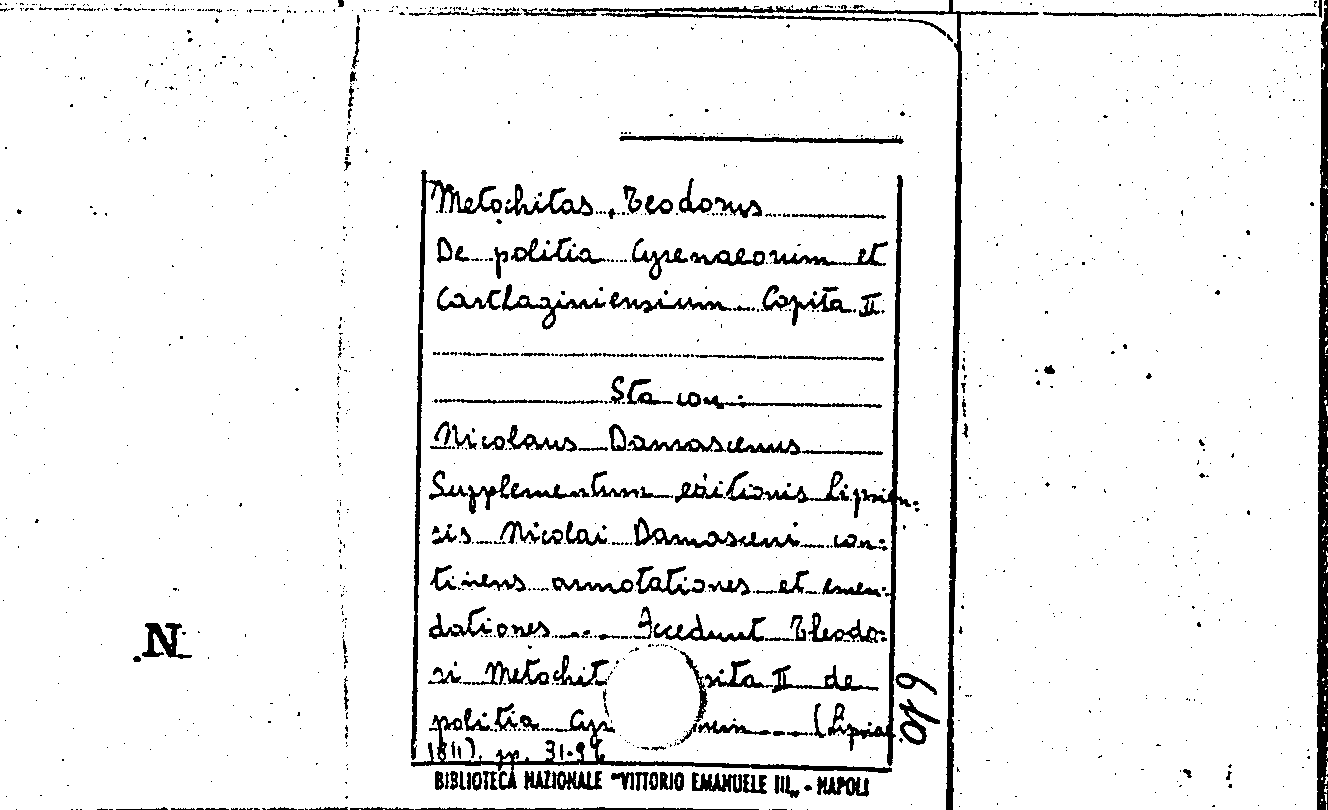 Metochitas, Teodorus
De politia Cyrenaeorum et
Carthaginiensium Capita II
Sta con:
Nicolaus Damascenus
Supplementum editionis Lipsien-
sis Nicolai Damasceni con-
tinens annotationes et emen-
dationes ... Accedunt Theodo-
ri Metochit pita II de
politia Cyr
1811). pp. 31-96
BIBLIOTECA NAZIONALE "VITTORIO EMANUELE III„ - NAPOLI
N